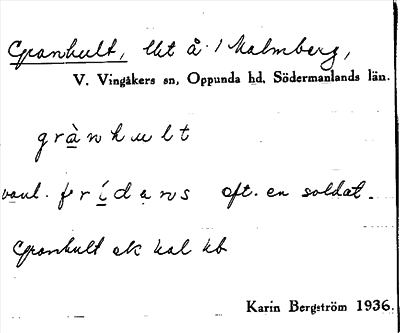 Granhult, lht å. 1 Malmberg,
V. Vingåkers sn, Oppunda hd, Södermanlands län.
grànhult
vanl. frídans eft. en soldat.
Granhult ek kal kb
Karin Bergström 1936.